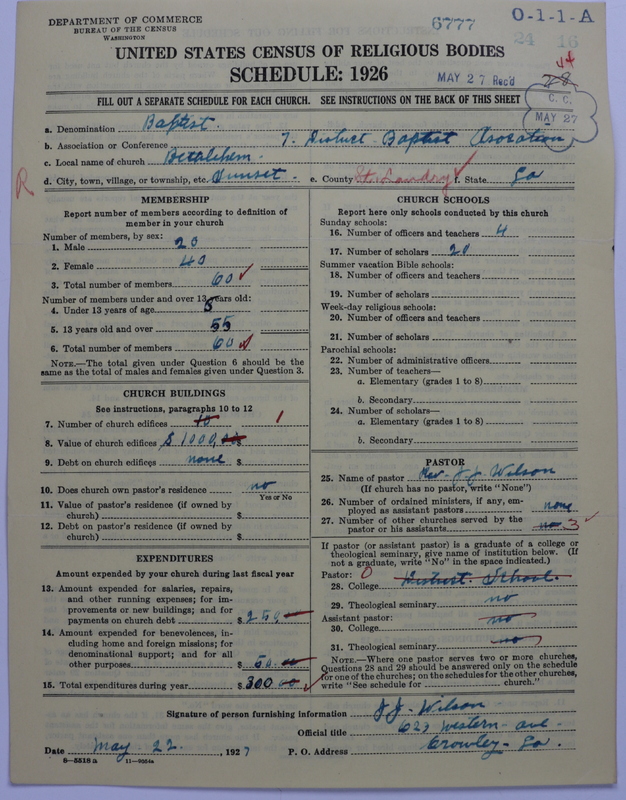 DEPARTMENT OF COMMERCE
BUREAU OF THE CENSUS
WASHINGTON
6777
O-1-1-A
24 16
UNITED STATES CENSUS OF RELIGIOUS BODIES
SCHEDULE: 1926
MAY 27 Rec'd
44
28
C. C.
MAY 27
FILL OUT A SEPARATE SCHEDULE FOR EACH CHURCH. SEE INSTRUCTIONS ON THE BACK OF THIS SHEET
a. Denomination Baptist.
b. Association or Conference 7. District Baptist Asociation
c. Local name of church Bethlehem.
d. City, town, village, or township, etc. Sunset. e. County St. Landry f. State La
R
MEMBERSHIP
Report number of members according to definition of member in your church
Number of members, by sex:
1. Male 20
2. Female 40
3. Total number of members 60
Number of members under and over 13 years old:
4. Under 13 years of age 5
5. 13 years old and over 55
6. Total number of members 60
NOTE.—The total given under Question 6 should be the same as the total of males and females given under Question 3.
CHURCH BUILDINGS
See instructions, paragraphs 10 to 12
7. Number of church edifices 10 1
8. Value of church edifices $1000,00 $
9. Debt on church edifices none $
10. Does church own pastor's residence no
Yes or No
11. Value of pastor's residence (if owned by church) $
12. Debt on pastor's residence (if owned by church) $
EXPENDITURES
Amount expended by your church during last fiscal year
13. Amount expended for salaries, repairs, and other running expenses; for improvements or new buildings; and for payments on church debt $250
14. Amount expended for benevolences, including home and foreign missions; for denominational support; and for all other purposes $50.00
15. Total expenditures during year $300 00
CHURCH SCHOOLS
Report here only schools conducted by this church
Sunday schools:
16. Number of officers and teachers 4
17. Number of scholars 20
Summer vacation Bible schools:
18. Number of officers and teachers
19. Number of scholars
Week-day religious schools:
20. Number of officers and teachers
21. Number of scholars
Parochial schools:
22. Number of administrative officers
23. Number of teachers—
a. Elementary (grades 1 to 8)
b. Secondary
24. Number of scholars—
a. Elementary (grades 1 to 8)
b. Secondary
PASTOR
25. Name of pastor Rev. J. J. Wilson
(If church has no pastor, write "None")
26. Number of ordained ministers, if any, employed as assistant pastors none
27. Number of other churches served by the pastor or his assistants no 3
If pastor (or assistant pastor) is a graduate of a college or theological seminary, give name of institution below. (If not a graduate, write "No" in the space indicated.)
Pastor: 0
28. College School.
29. Theological seminary no
Assistant pastor:
30. College no
31. Theological seminary no
NOTE.—Where one pastor serves two or more churches, Questions 28 and 29 should be answered only on the schedule for one of the churches; on the schedules for the other churches, write "See schedule for church."
Signature of person furnishing information J. J. Wilson
Official title 623 Western ave
Date May. 22, 1927 P. O. Address Crowley - La.
8—5518 a 11—9054a